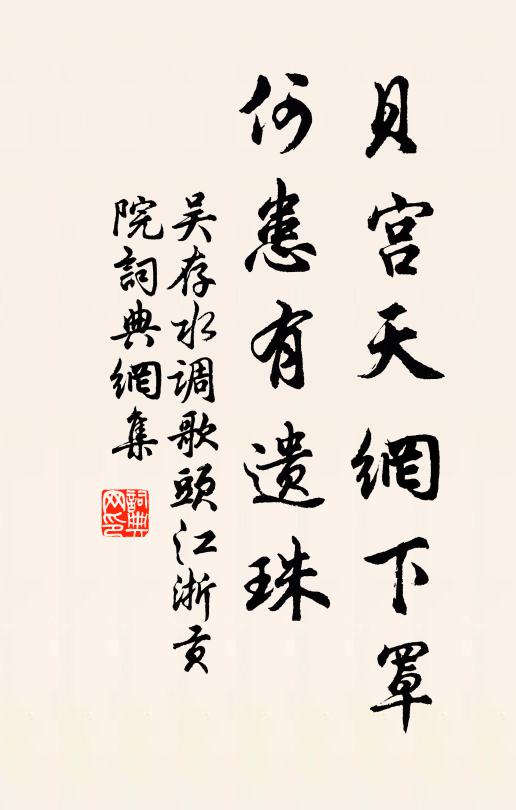 貝宫天網下罩
何患有遺珠
吴存水调歌頭江浙贡
院詞典網集
詞典
网印